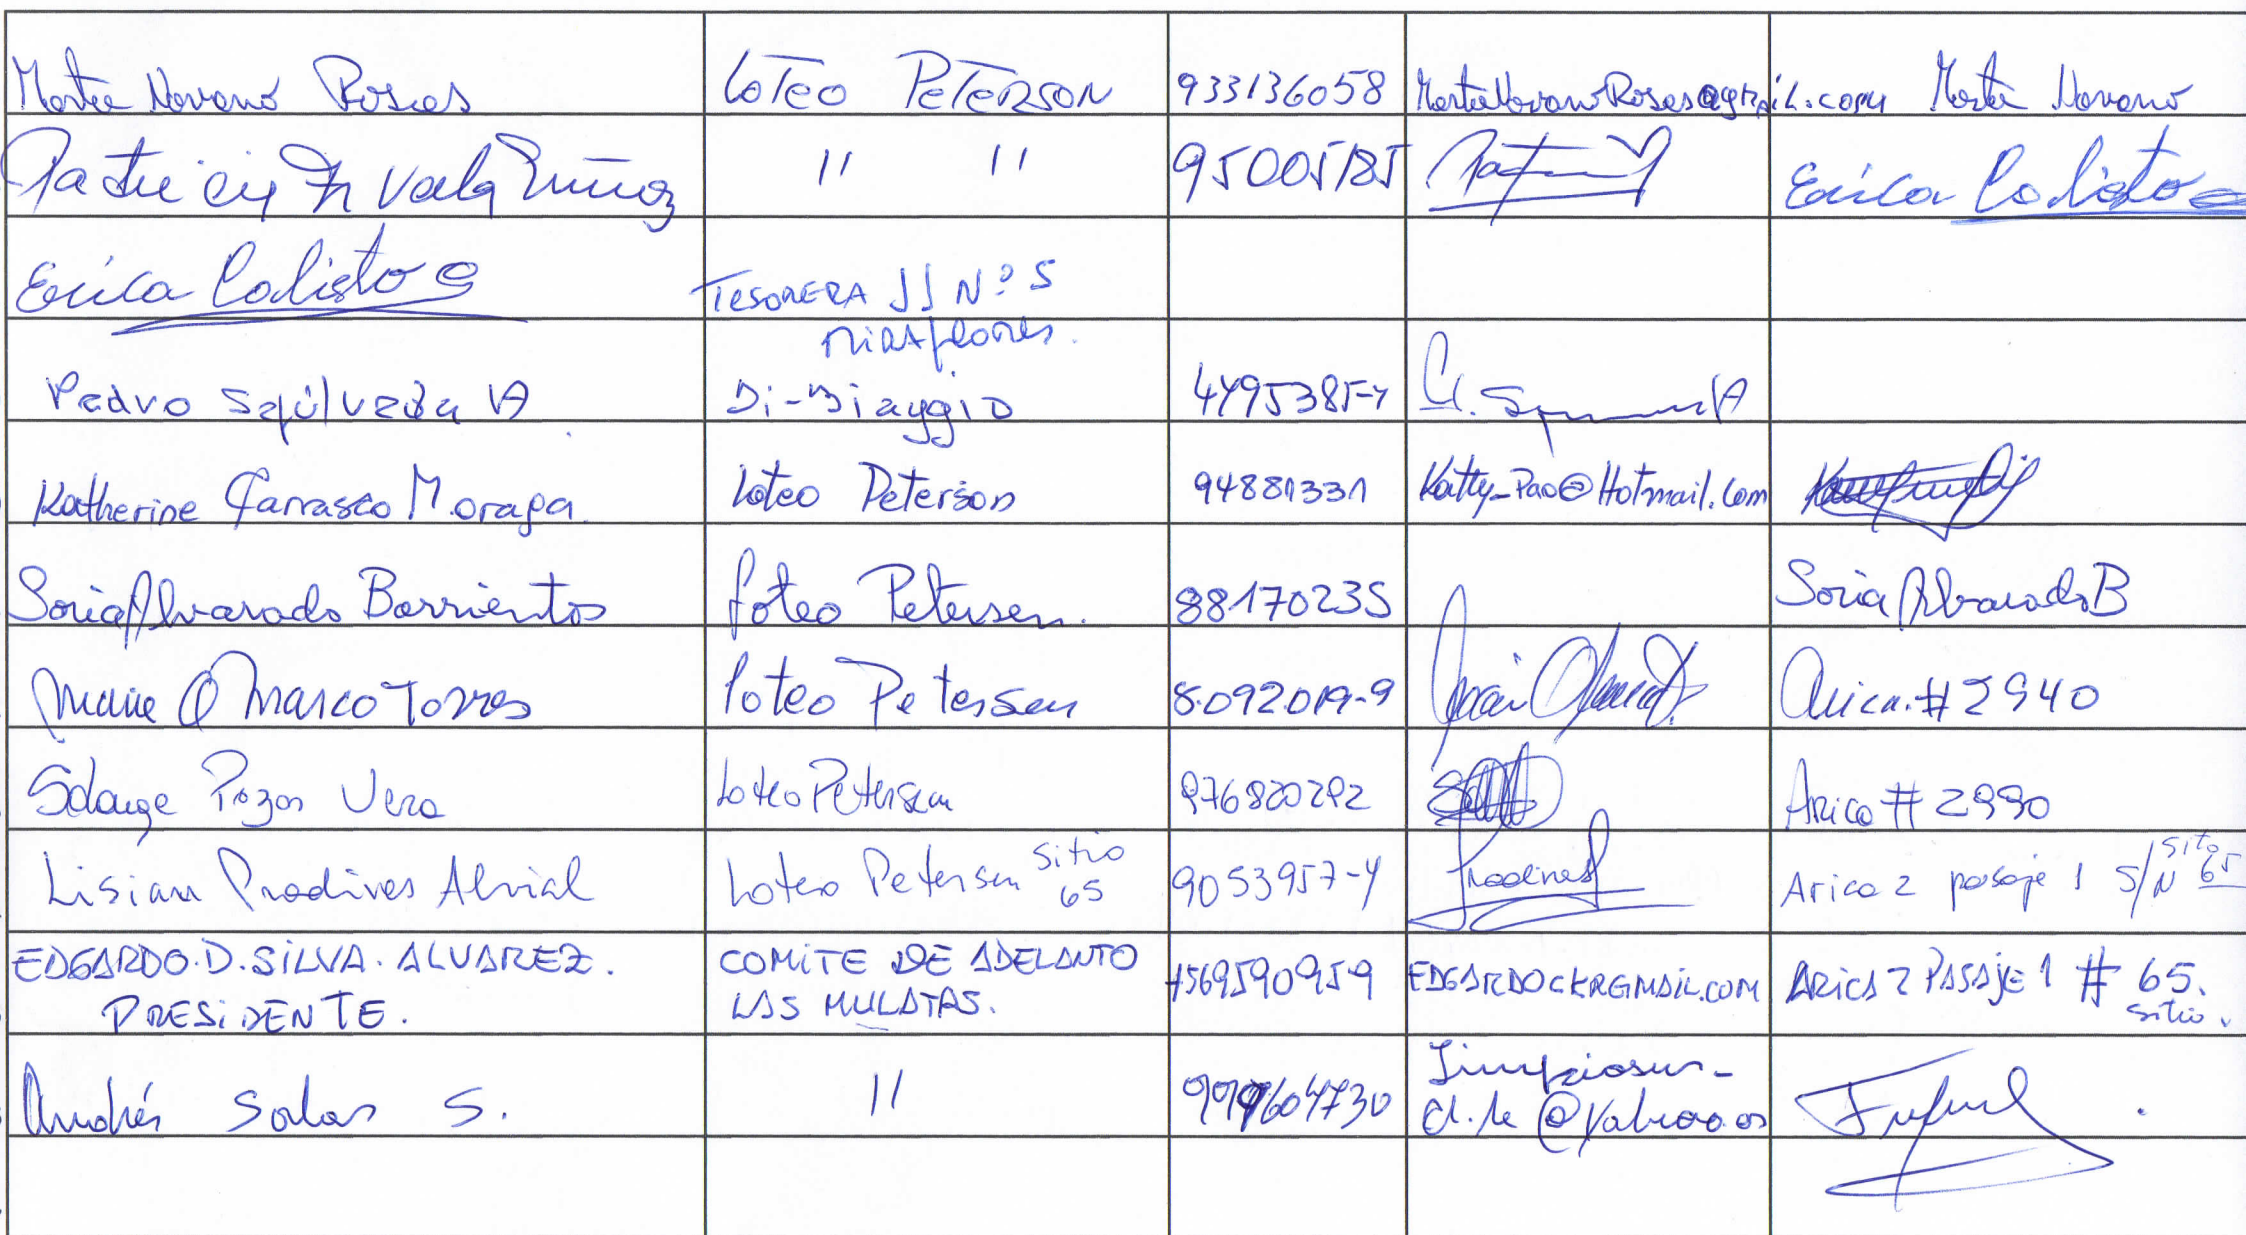 Marta Navarro Rosas LoTeo PeTeRSON 933136058 MartaNavarroRosas@gmail.com Marta Navarro
Patricia Muñoz " " 95005185 Erica Calisto
Erica Calisto TESORERA JJ Nº 5
MIRAFlores.
Pedro Sepúlveda VA Di-Biaggio 4495385-4
Katherine Carrasco Moraga. Loteo Peterson 94881331 Katty_Pao@Hotmail.com
Sonia Alvarado Barrientos Loteo Petersen. 88170235 Sonia Alvarado B
Marco Torres loteo Petersen 8.092.019-9 Arica. #2940
Solange Pozas Vera Loteo Petersen 976820292 Arica # 2990
Lisian Prodives Alvial Loteo Petersen sitio 65 9053957-4 Arica 2 pasaje 1 S/N sitio 65
EDGARDO.D.SILVA.ALVAREZ. COMITE DE ADELANTO +569590959 EDGARDOCKRGMAIL.COM ARICA 2 PASAJE 1 # 65.
PRESIDENTE. LAS MULATAS. sitio.
Andrés Salas S. "